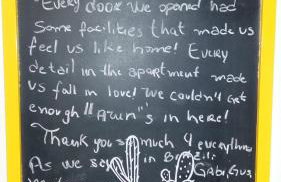 "Every door we opened had
Some facilities that made us
feel us like home! Every
detail in the apartment made
us fall in love! We couldn't get
enough "Awn"s in here!
Thank you so much 4 everything
As we say in Brazil:
Gabi, Gus,